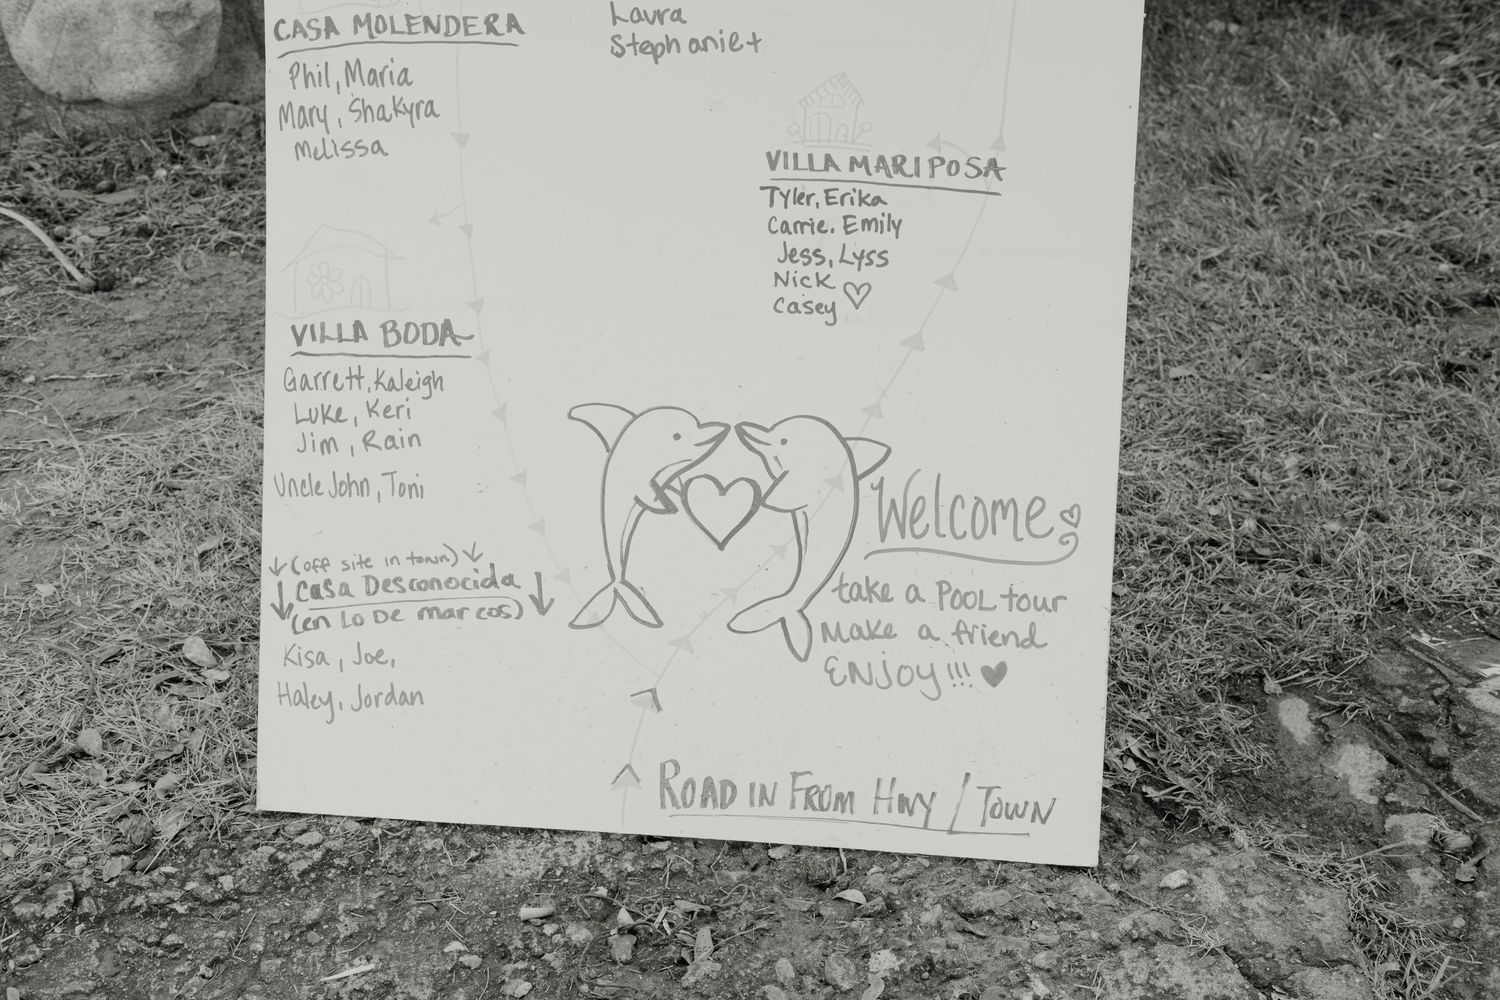 CASA MOLENDERA
Phil, Maria
Mary, Shakyra
Melissa
Laura
Stephanie+
VILLA MARIPOSA
Tyler, Erika
Carrie. Emily
Jess, Lyss
Nick
Casey
VILLA BODA
Garrett, Kaleigh
Luke, Keri
Jim, Rain
Uncle John, Toni
(off site in town)
Casa Desconocida
(en Lo De marcos)
Kisa, Joe,
Haley, Jordan
Welcome
take a POOL tour
Make a friend
ENJOY!!!
ROAD IN FROM HWY / TOWN